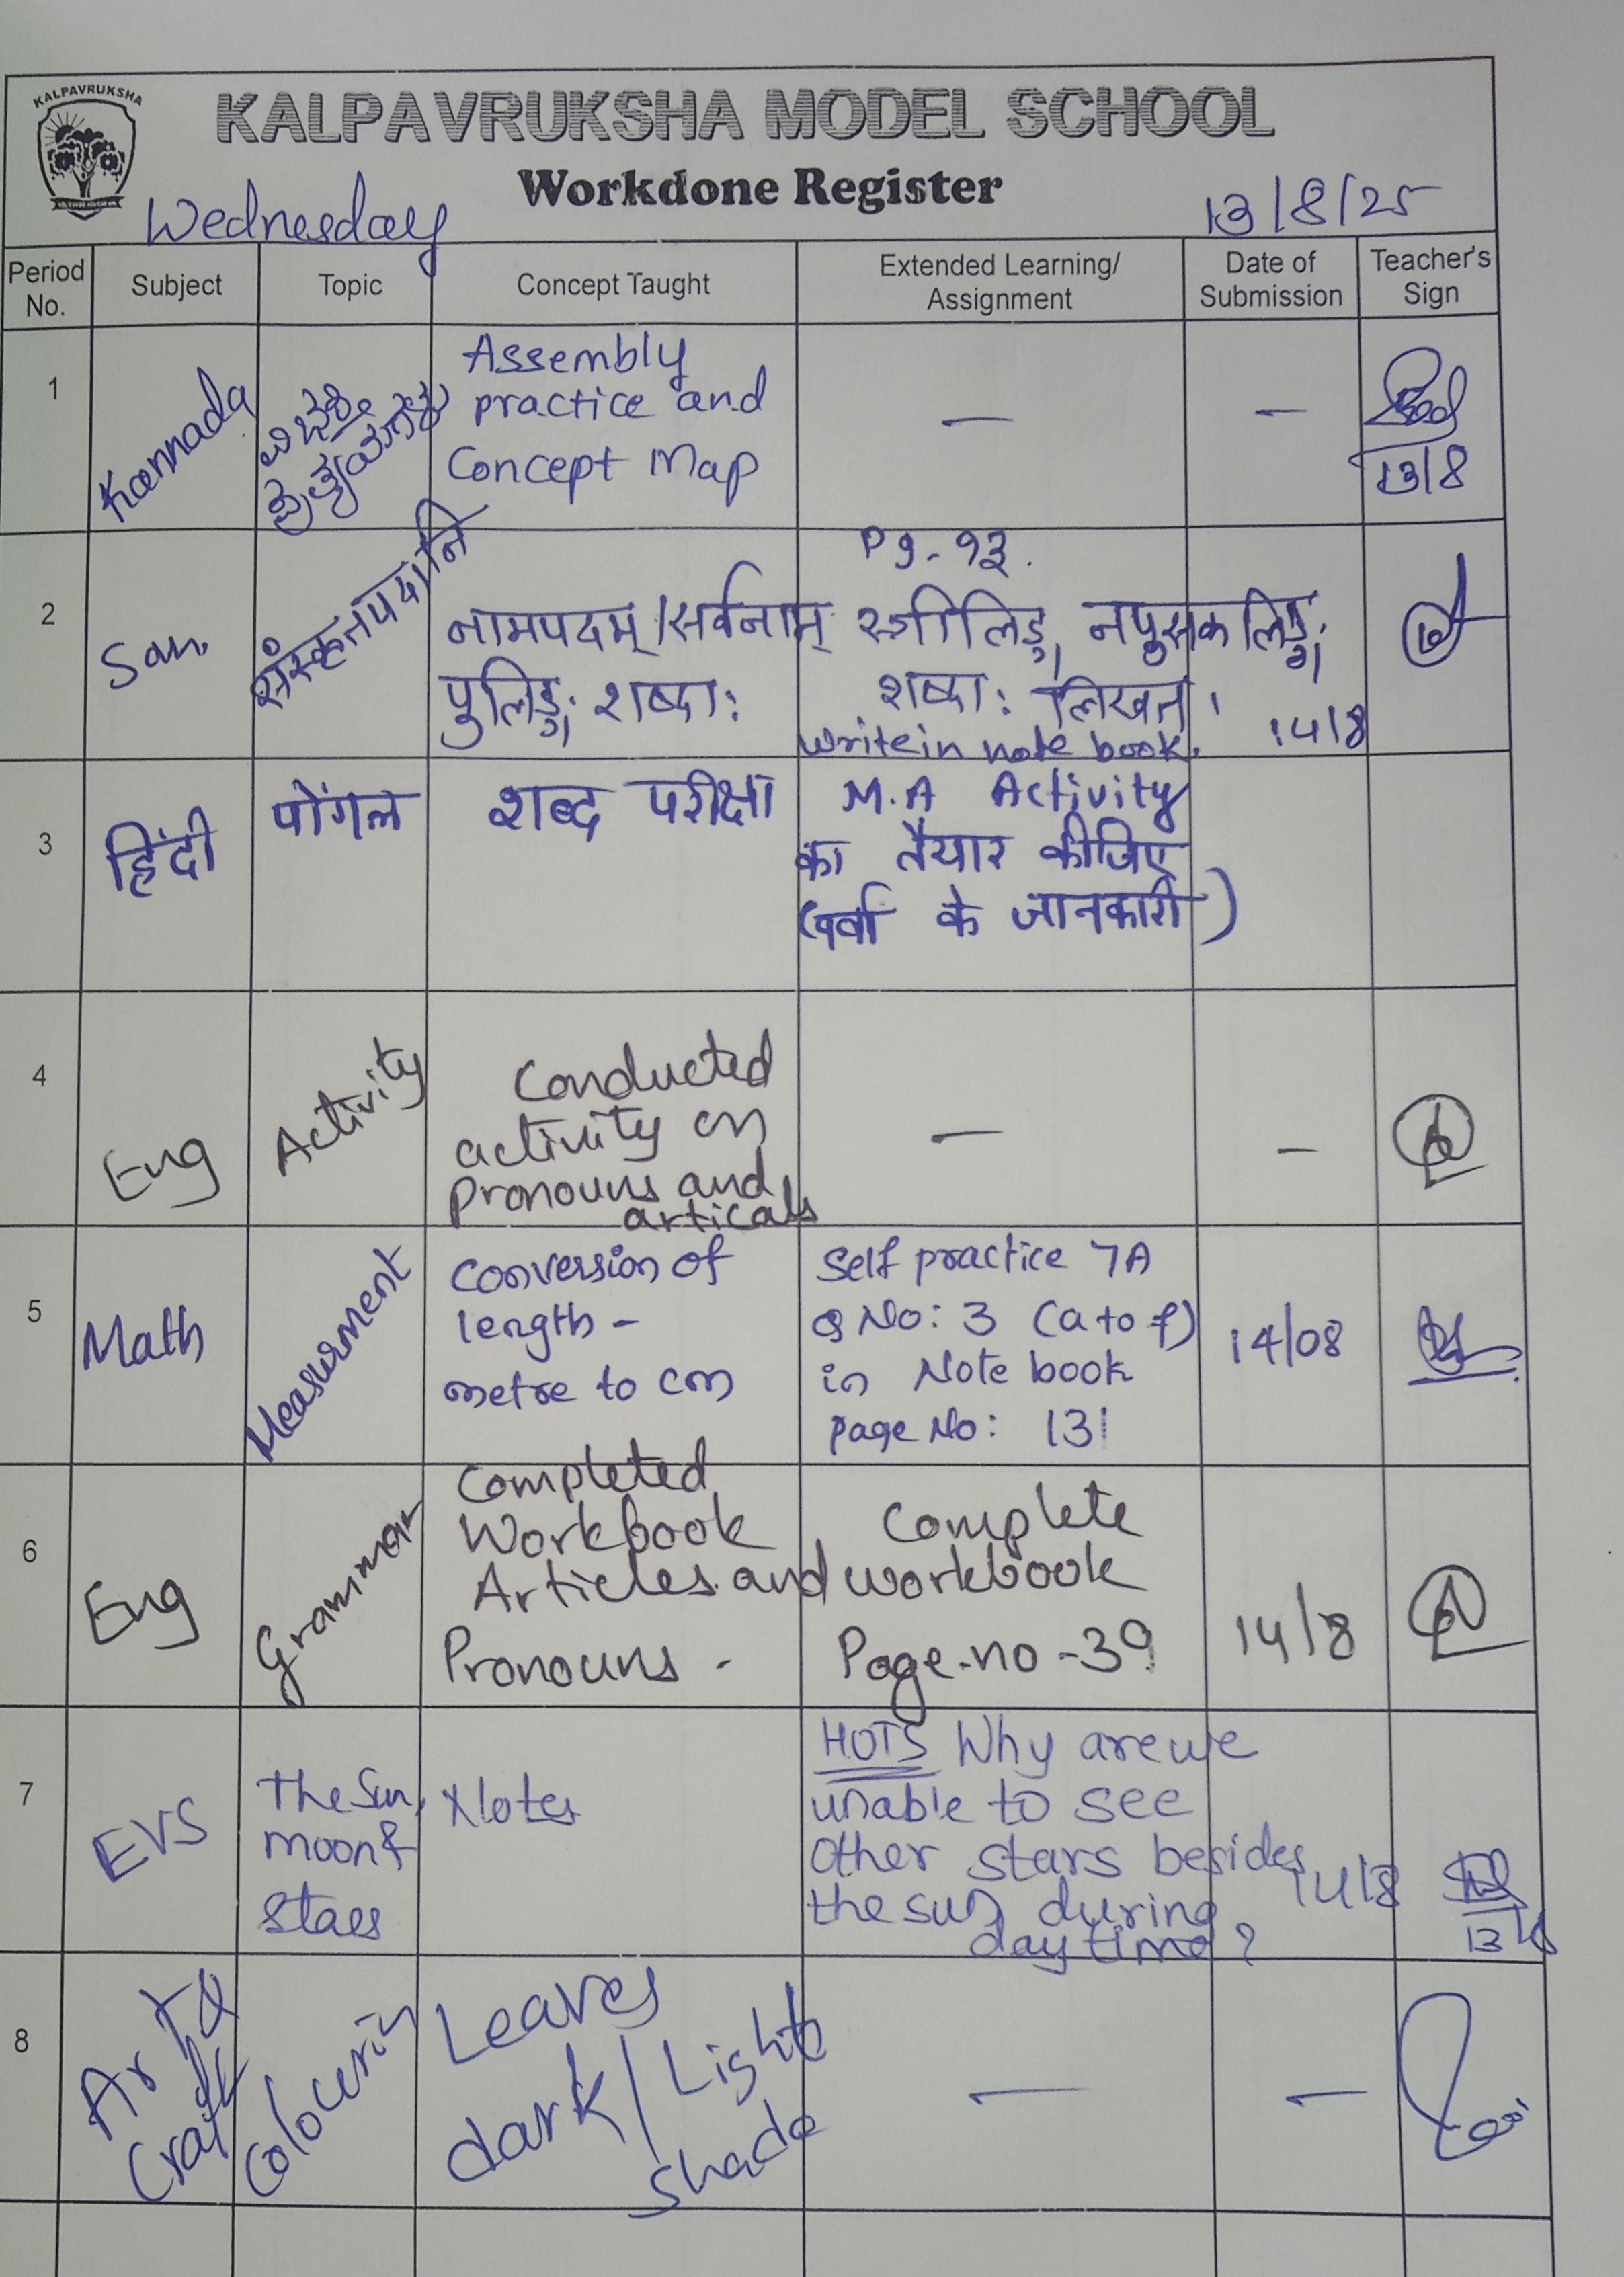 KALPAVRUKSHA
KALPAVRUKSHA MODEL SCHOOL
Workdone Register
Wednesday
13/8/25
Period No.
Subject
Topic
Concept Taught
Extended Learning/
Assignment
Date of
Submission
Teacher's
Sign
1
Kannada
Assembly
practice and
Concept Map
—
—
13/8
2
San.
संस्कृतपदानि
नामपदम्/सर्वनाम्
पुलिङ्ग. शब्दाः
Pg - १३.
स्त्रीलिङ्ग, नपुसकलिङ्ग.
शब्दाः लिखत।
write in note book.
14/8
3
हिंदी
पोंगल
शब्द परीक्षा
M.A Activity
का तैयार कीजिए
(पर्वो के जानकारी)
4
Eng
Activity
Conducted
activity on
Pronouns and
articals
—
—
5
Math
Measurment
Conversion of
length -
metre to cm
Self practice 7A
Q No: 3 (a to f)
in Note book
page No: 131
14/08
6
Eng
Grammar
Completed
Workbook
Articles and
Pronouns -
Complete
workbook
Page.no - 39
14/8
7
EVS
The Sun,
moon &
stars
Notes
HOTS Why are we
unable to see
other stars besides
the sun during
day time?
14/8
13/8
8
Art &
Craft
Colourin
Leaves
dark/Light
shade
—
—